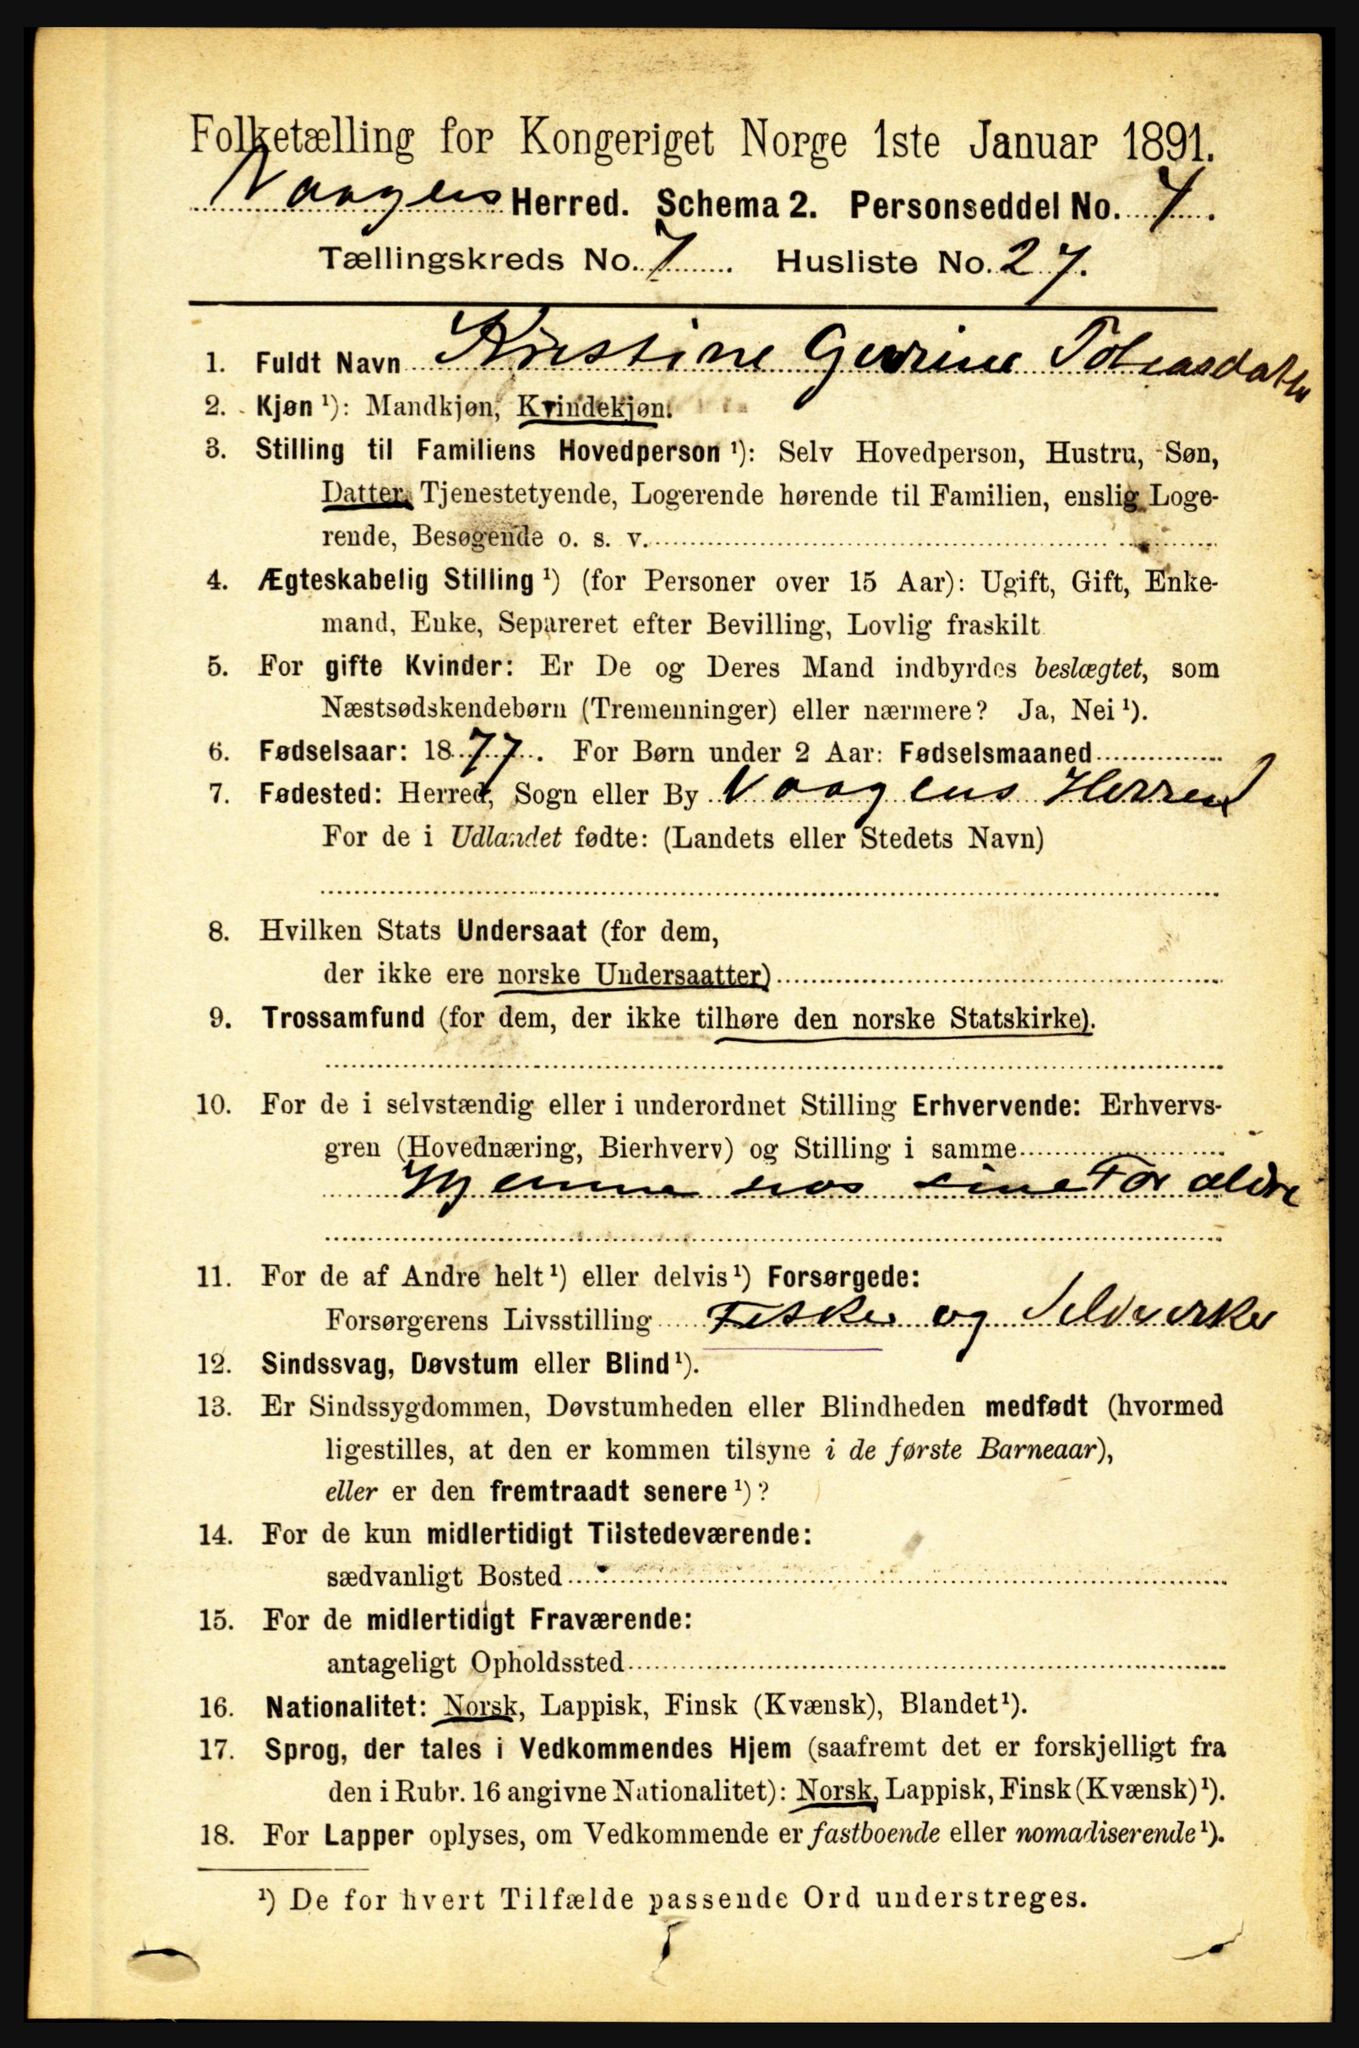 Folketælling for Kongeriget Norge 1ste Januar 1891.
Vaagens Herred. Schema 2. Personseddel No. 4.
Tællingskreds No. 7. Husliste No. 27.
1. Fuldt Navn Kristine Gurine Tobiasdatter
2. Kjøn ¹): Mandkjøn, Kvindekjøn.
3. Stilling til Familiens Hovedperson ¹): Selv Hovedperson, Hustru, Søn,
Datter, Tjenestetyende, Logerende hørende til Familien, enslig Loge-
rende, Besøgende o. s. v.
4. Ægteskabelig Stilling ¹) (for Personer over 15 Aar): Ugift, Gift, Enke-
mand, Enke, Separeret efter Bevilling, Lovlig fraskilt
5. For gifte Kvinder: Er De og Deres Mand indbyrdes beslægtet, som
Næstsødskendebørn (Tremenninger) eller nærmere? Ja, Nei ¹).
6. Fødselsaar: 1877. For Børn under 2 Aar: Fødselsmaaned
7. Fødested: Herred, Sogn eller By Vaagens Herred
For de i Udlandet fødte: (Landets eller Stedets Navn)
8. Hvilken Stats Undersaat (for dem,
der ikke ere norske Undersaatter)
9. Trossamfund (for dem, der ikke tilhøre den norske Statskirke).
10. For de i selvstændig eller i underordnet Stilling Erhvervende: Erhvervs-
gren (Hovednæring, Bierhverv) og Stilling i samme
Hjemme hos sine Foræeldre
11. For de af Andre helt ¹) eller delvis ¹) Forsørgede:
Forsørgerens Livsstilling Fisker og Selveier
12. Sindssvag, Døvstum eller Blind ¹).
13. Er Sindssygdommen, Døvstumheden eller Blindheden medfødt (hvormed
ligestilles, at den er kommen tilsyne i de første Barneaar),
eller er den fremtraadt senere ¹)?
14. For de kun midlertidigt Tilstedeværende:
sædvanligt Bosted
15. For de midlertidigt Fraværende:
antageligt Opholdssted
16. Nationalitet: Norsk, Lappisk, Finsk (Kvænsk), Blandet ¹).
17. Sprog, der tales i Vedkommendes Hjem (saafremt det er forskjelligt fra
den i Rubr. 16 angivne Nationalitet): Norsk, Lappisk, Finsk (Kvænsk) ¹).
18. For Lapper oplyses, om Vedkommende er fastboende eller nomadiserende ¹).
¹) De for hvert Tilfælde passende Ord understreges.